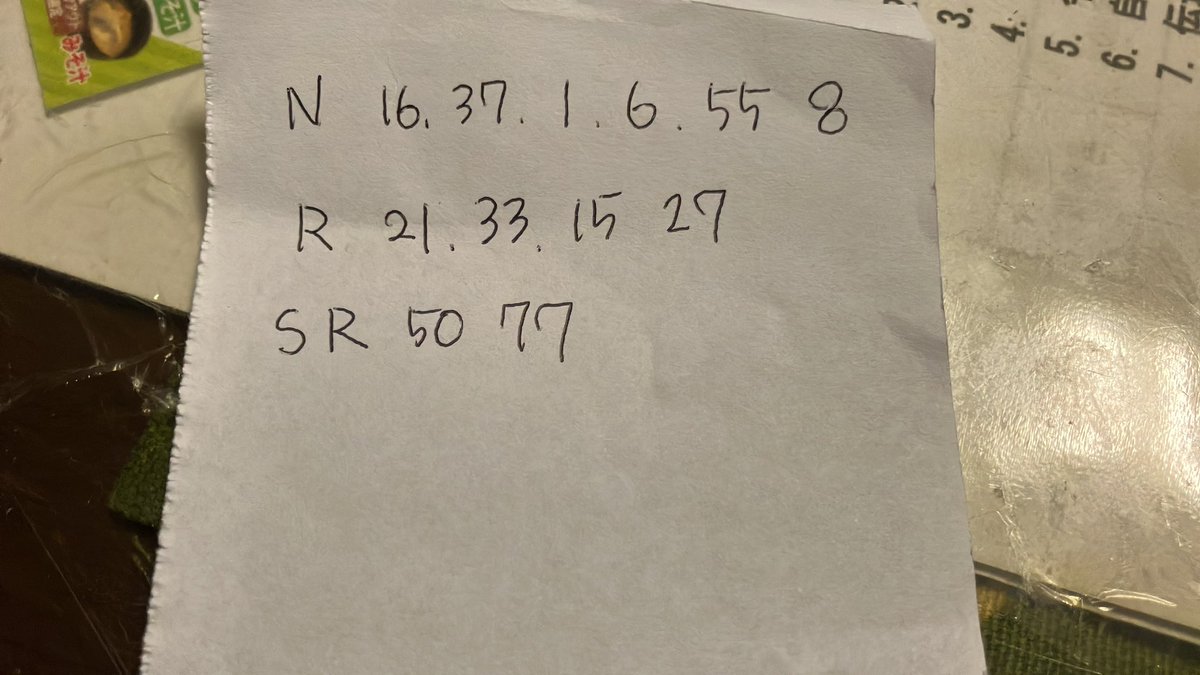 N 16. 37. 1. 6. 55 8
R 21. 33. 15 27
SR 50 77
3.
4.
5.
6.
7.
みそ汁